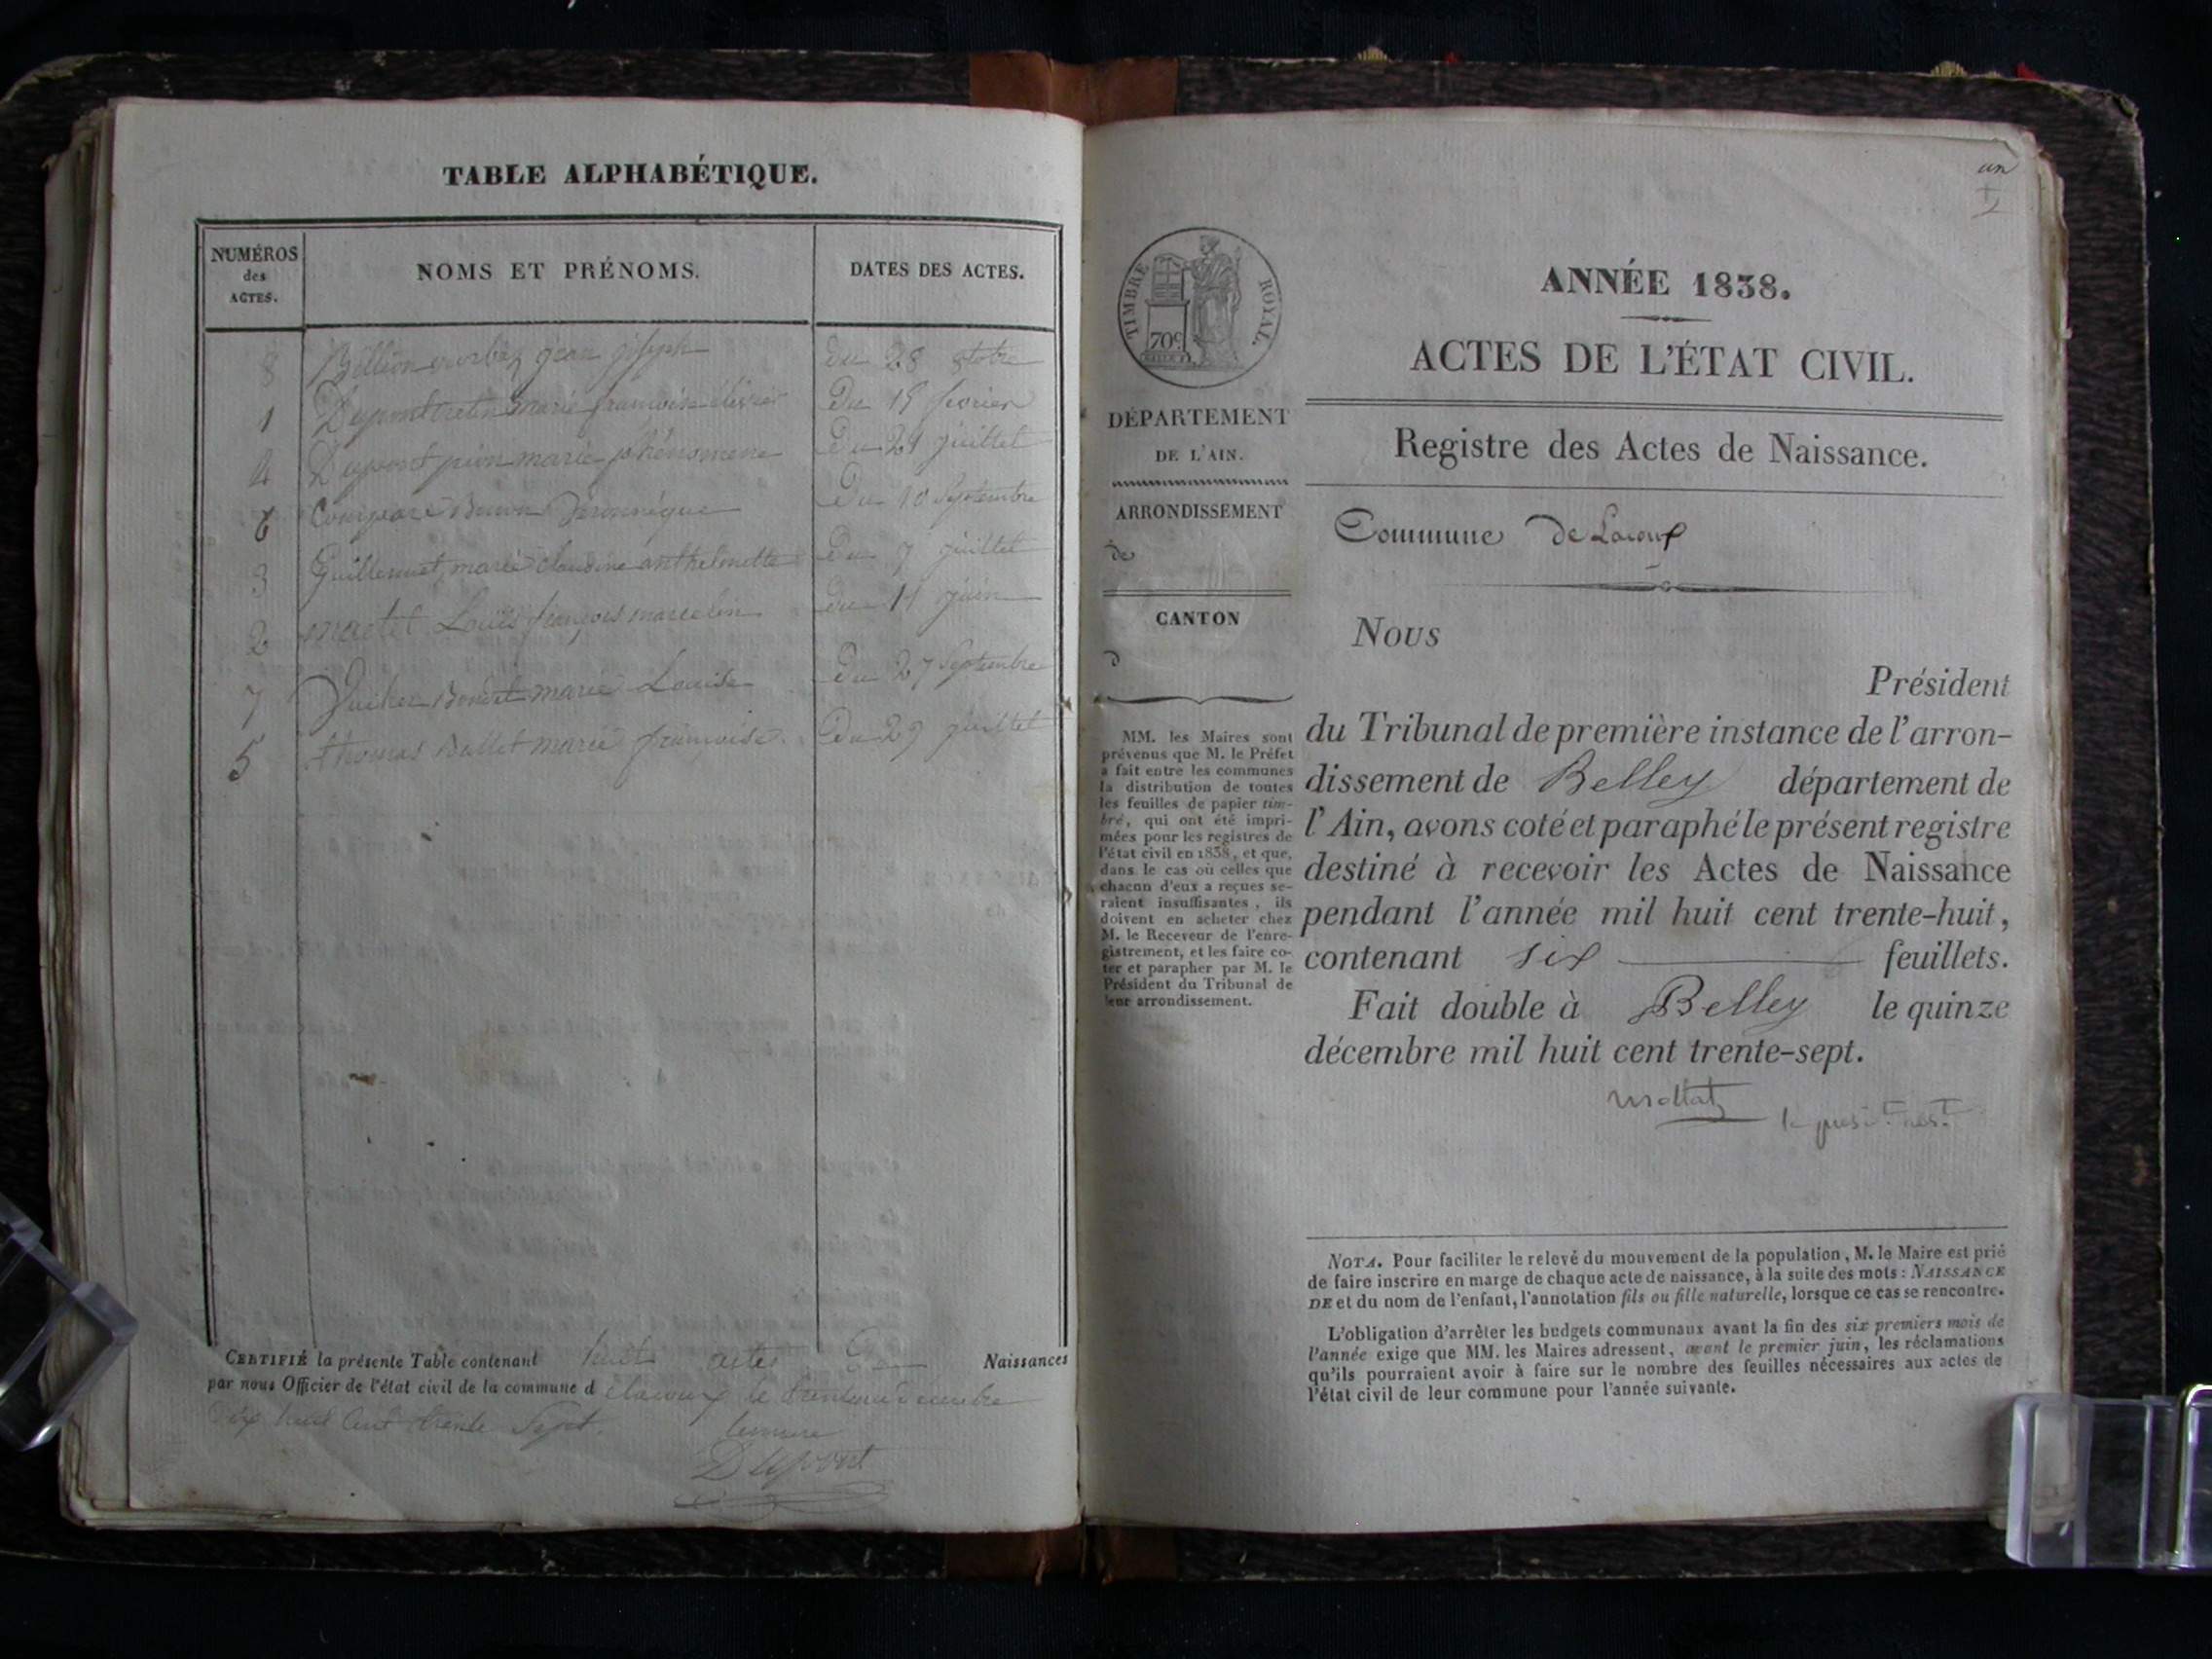 TABLE ALPHABÉTIQUE.
NUMÉROS
des
ACTES.
NOMS ET PRÉNOMS.
DATES DES ACTES.
8 Billion jean joseph du 28 8tobre
1 Dupont marie françoise Du 15 février
4 Dupont marie phénomene Du 21 juillet
6 Véronnique Du 10 Septembre
3 Guillermet marie claudine anthelmette Du 7 juillet
2 martel Louis françois marcelin Du 11 juin
7 marie Louise Du 27 Septembre
5 thomas Ballet marie françoise. Du 29 juillet
CERTIFIÉ la présente Table contenant huit actes De Naissances
par nous Officier de l'état civil de la commune d elacoux le Decembre
huit Cent trente Sept. lemaire
Dupont
un
TIMBRE ROYAL.
70c
DÉPARTEMENT
DE L'AIN.
ARRONDISSEMENT
de
CANTON
d
MM. les Maires sont
prévenus que M. le Préfet
a fait entre les communes
la distribution de toutes
les feuilles de papier tim-
bré, qui ont été impri-
mées pour les registres de
l'état civil en 1838, et que,
dans le cas où celles que
chacun d'eux a reçues se-
raient insuffisantes, ils
doivent en acheter chez
M. le Receveur de l'enre-
gistrement, et les faire co-
ter et parapher par M. le
Président du Tribunal de
leur arrondissement.
ANNÉE 1838.
ACTES DE L'ÉTAT CIVIL.
Registre des Actes de Naissance.
Commune De Lacoux
Nous
Président
du Tribunal de première instance de l'arron-
dissement de Belley département de
l'Ain, avons coté et paraphé le présent registre
destiné à recevoir les Actes de Naissance
pendant l'année mil huit cent trente-huit,
contenant six feuillets.
Fait double à Belley le quinze
décembre mil huit cent trente-sept.
NOTA. Pour faciliter le relevé du mouvement de la population, M. le Maire est prié
de faire inscrire en marge de chaque acte de naissance, à la suite des mots : NAISSANCE
DE et du nom de l'enfant, l'annotation fils ou fille naturelle, lorsque ce cas se rencontre.
L'obligation d'arrêter les budgets communaux avant la fin des six premiers mois de
l'année exige que MM. les Maires adressent, avant le premier juin, les réclamations
qu'ils pourraient avoir à faire sur le nombre des feuilles nécessaires aux actes de
l'état civil de leur commune pour l'année suivante.